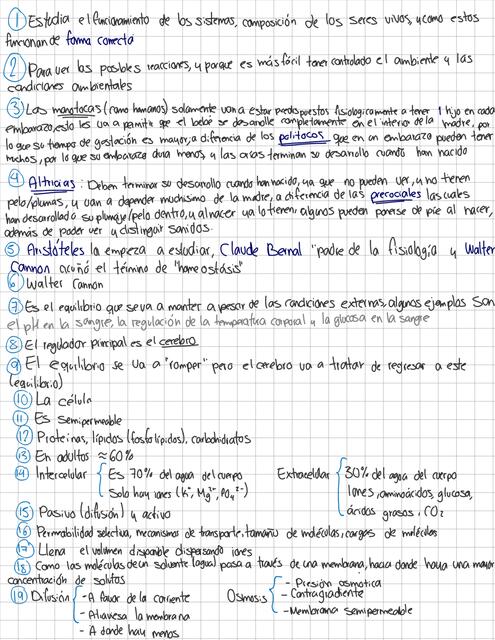 1 Estudia el funcionamiento de los sistemas, composición de los seres vivos, y como estos
funcionan de forma correcta
2 Para ver las posibles reacciones, y porque es más fácil tener controlado el ambiente y las
condiciones ambientales
3 Las monotocas (como humanos) solamente van a estar predispuestos fisiologicamente a tener 1 hijo en cada
embarazo, esto les va a permitir que el bebé se desarolle completamente en el interior de la madre, por
lo que su tiempo de gestación es mayor, a diferencia de los politocos que en un embarazo pueden tener
muchos, por lo que su embarazo dura menos, y las crias terminan su desarrollo cuando han nacido
4 Altricias: Deben terminar su desarollo cuando han nacido, ya que no pueden ver, y no tienen
pelo/plumas, y van a depender muchisimo de la madre, a diferencia de las precociales las cuales
han desarrollado su plumaje/pelo dentro, y al nacer ya lo tienen, algunos pueden ponerse de pie al nacer,
además de poder ver y distinguir sonidos.
5 Aristóteles la empeza a estudiar, Claude Bernal "padre de la fisiología y Walter
Cannon acuñó el término de "homeostásis"
6 Walter Cannon
7 Es el equilibrio que se va a mantener a pesar de las condiciones externas, algunos ejemplos son
el pH en la sangre, la regulación de la temperatura corporal y la glucosa en la sangre
8 El regulador principal es el cerebro
9 El equilibrio se va a "romper" pero el cerebro va a tratar de regresar a este
(equilibrio)
10 La célula
11 Es semipermeable
12 Proteínas, lípidos (fosfolípidos), carbohidratos
13 En adultos ≈ 60%
14 Intercelular { Es 70% del agua del cuerpo Extracelular { 30% del agua del cuerpo
Solo hay iones (K⁺, Mg²⁺, PO₄²⁻) Iones, aminoácidos, glucosa,
ácidos grasos, CO₂
15 Pasivo (difusión) y activo
16 Permabilidad selectiva, mecanismos de transporte, tamaño de moléculas, cargas de moléculas
17 Llena el volumen disponible dispersando iones
18 Como las moléculas de un solvente (agua) pasa a través de una membrana, hacia donde haya una mayor
concentración de solutos
19 Difusión { - A favor de la corriente Osmosis { - Presión osmotica
- Atraviesa la membrana - Contragradiente
- A donde hay menos - Membrana semipermeable